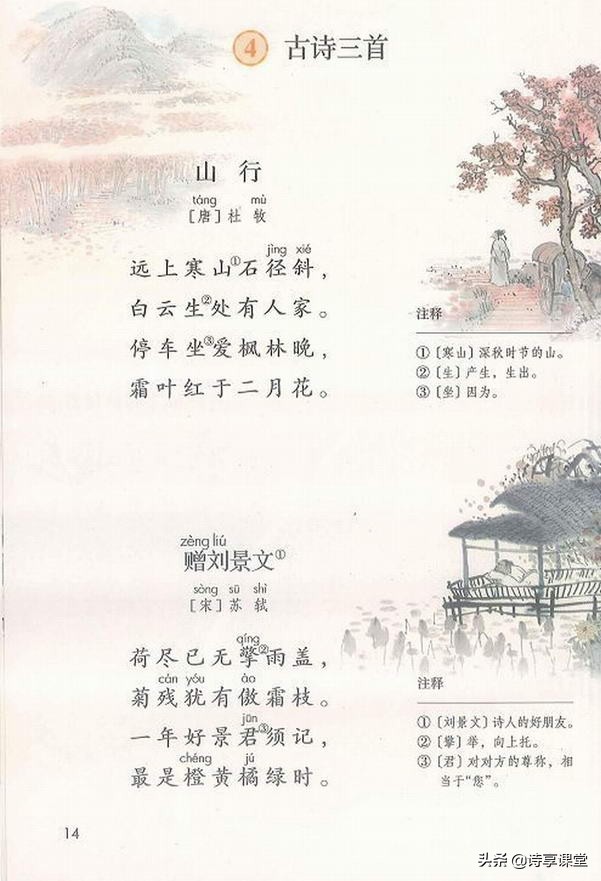 4 古诗三首
山行
táng mù
[唐]杜牧
jìng xié
远上寒山①石径斜，
白云生②处有人家。
停车坐③爱枫林晚，
霜叶红于二月花。
注释
①〔寒山〕深秋时节的山。
②〔生〕产生，生出。
③〔坐〕因为。
zèng liú
赠刘景文①
sòng sū shì
[宋]苏轼
qíng
荷尽已无擎②雨盖，
cán yóu ào
菊残犹有傲霜枝。
jūn
一年好景君③须记，
chéng jú
最是橙黄橘绿时。
注释
①〔刘景文〕诗人的好朋友。
②〔擎〕举，向上托。
③〔君〕对对方的尊称，相
当于“您”。
14
头条@诗享课堂